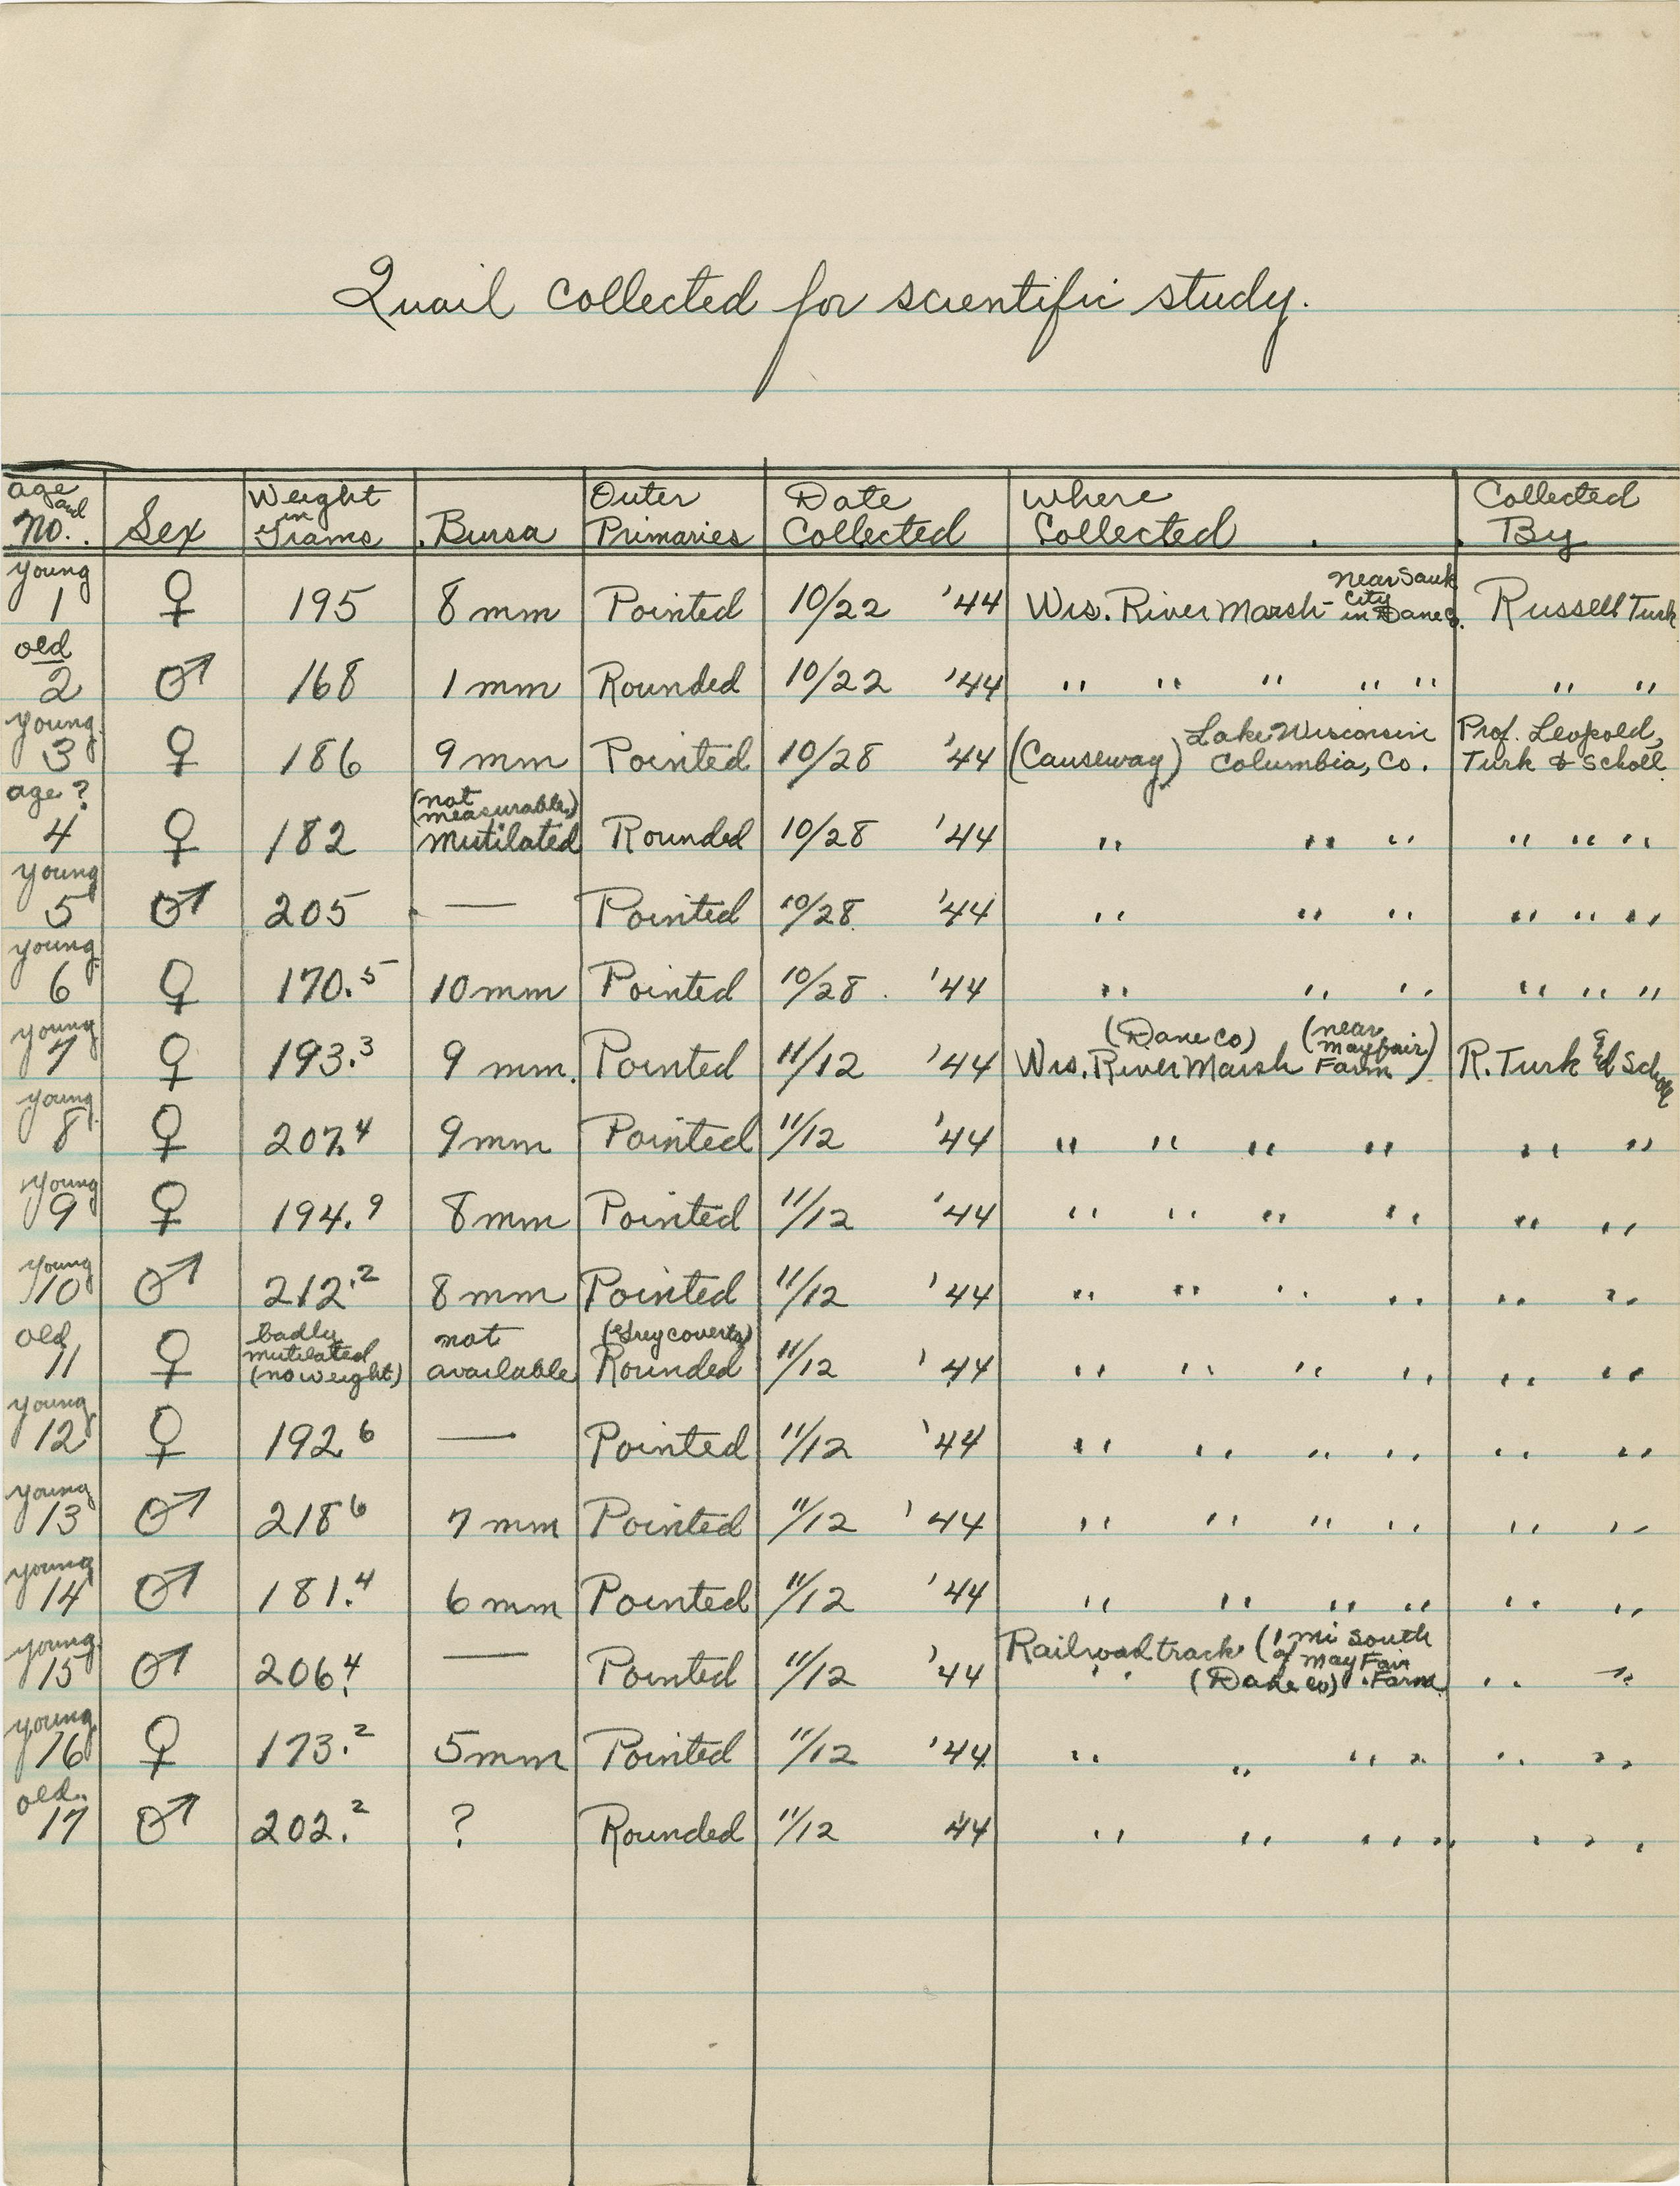 Quail collected for scientific study.
age and No. Sex Weight in Grams Bursa Outer Primaries Date Collected Where Collected Collected By
young 1 ♀ 195 8 mm Pointed 10/22 '44 Wis. River Marsh - near Sauk City in Dane Co. Russell Turk
old 2 ♂ 168 1 mm Rounded 10/22 '44 " " " " " " "
young 3 ♀ 186 9 mm Pointed 10/28 '44 (Causeway) Lake Wisconsin Columbia, Co. Prof. Leopold, Turk & Scholl
age? 4 ♀ 182 (not measurable) mutilated Rounded 10/28 '44 " " " " " "
young 5 ♂ 205 — Pointed 10/28 '44 " " " " " "
young 6 ♀ 170.5 10 mm Pointed 10/28 '44 " " " " " "
young 7 ♀ 193.3 9 mm. Pointed 11/12 '44 Wis. River Marsh (Dane Co) (near Mayfair Farm) R. Turk & Scholl
young 8 ♀ 207.4 9 mm Pointed 11/12 '44 " " " " " "
young 9 ♀ 194.9 8 mm Pointed 11/12 '44 " " " " " "
young 10 ♂ 212.2 8 mm Pointed 11/12 '44 " " " " " "
old 11 ♀ badly mutilated (no weight) not available (Grey coverts) Rounded 11/12 '44 " " " " " "
young 12 ♀ 192 6 — Pointed 11/12 '44 " " " " " "
young 13 ♂ 218 6 7 mm Pointed 11/12 '44 " " " " " "
young 14 ♂ 181.4 6 mm Pointed 11/12 '44 " " " " " "
young 15 ♂ 206.4 — Pointed 11/12 '44 Railroad track (1 mi south of May Fair Farm (Dane Co) " "
young 16 ♀ 173.2 5 mm Pointed 11/12 '44 " " " " " "
old 17 ♂ 202.2 ? Rounded 11/12 '44 " " " " " "